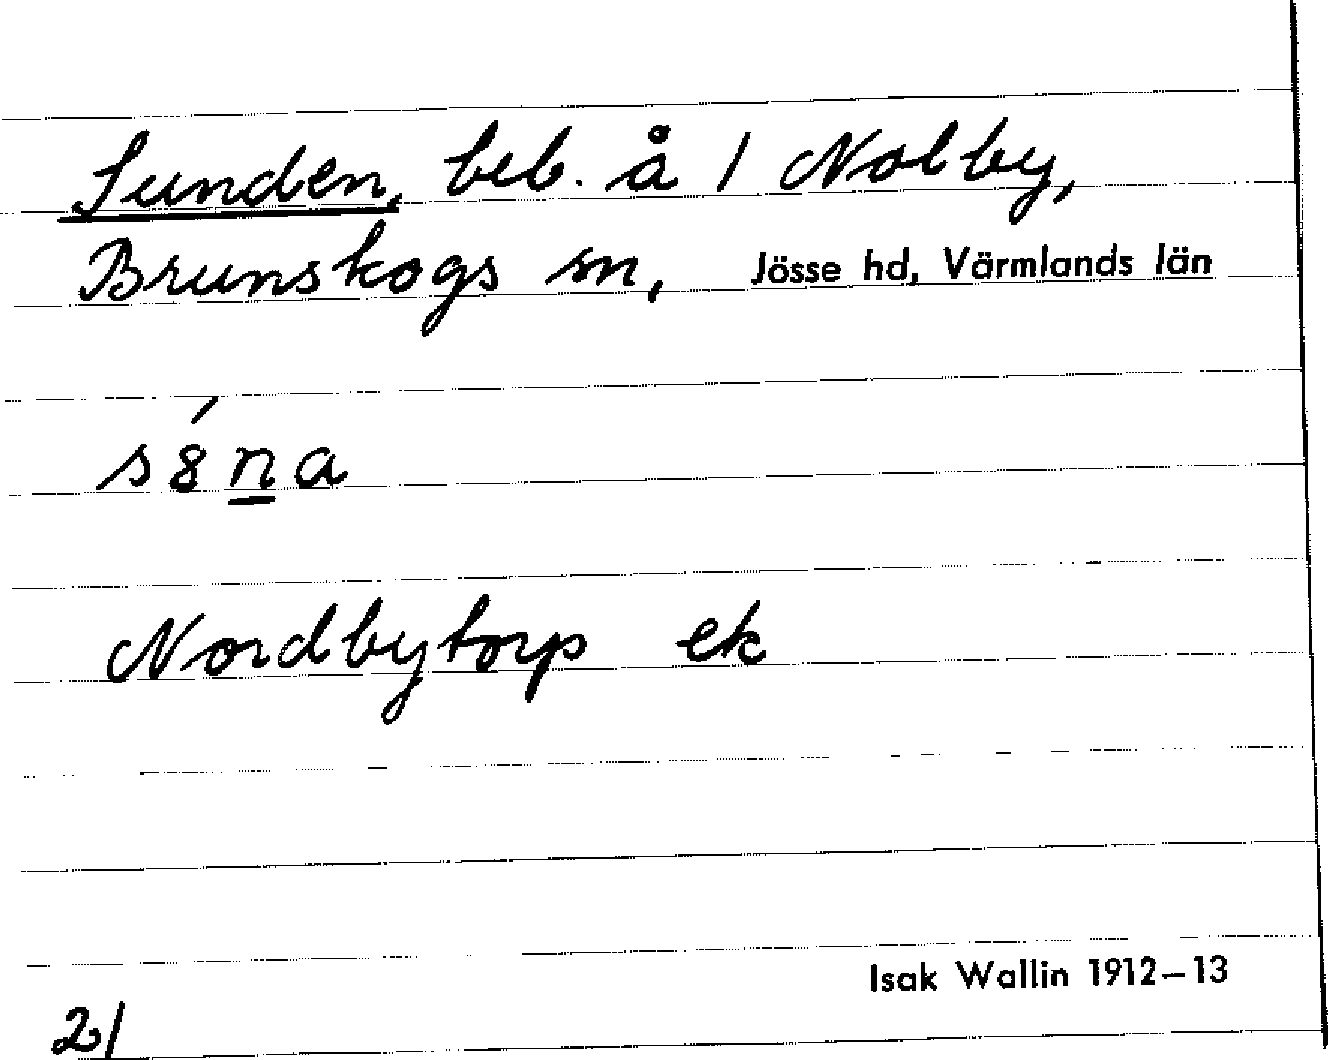 Sunden, beb. å / Nolby,
Brunskogs sn, Jösse hd, Värmlands län
s8́na
Nordbytorp ek
Isak Wallin 1912–13
21